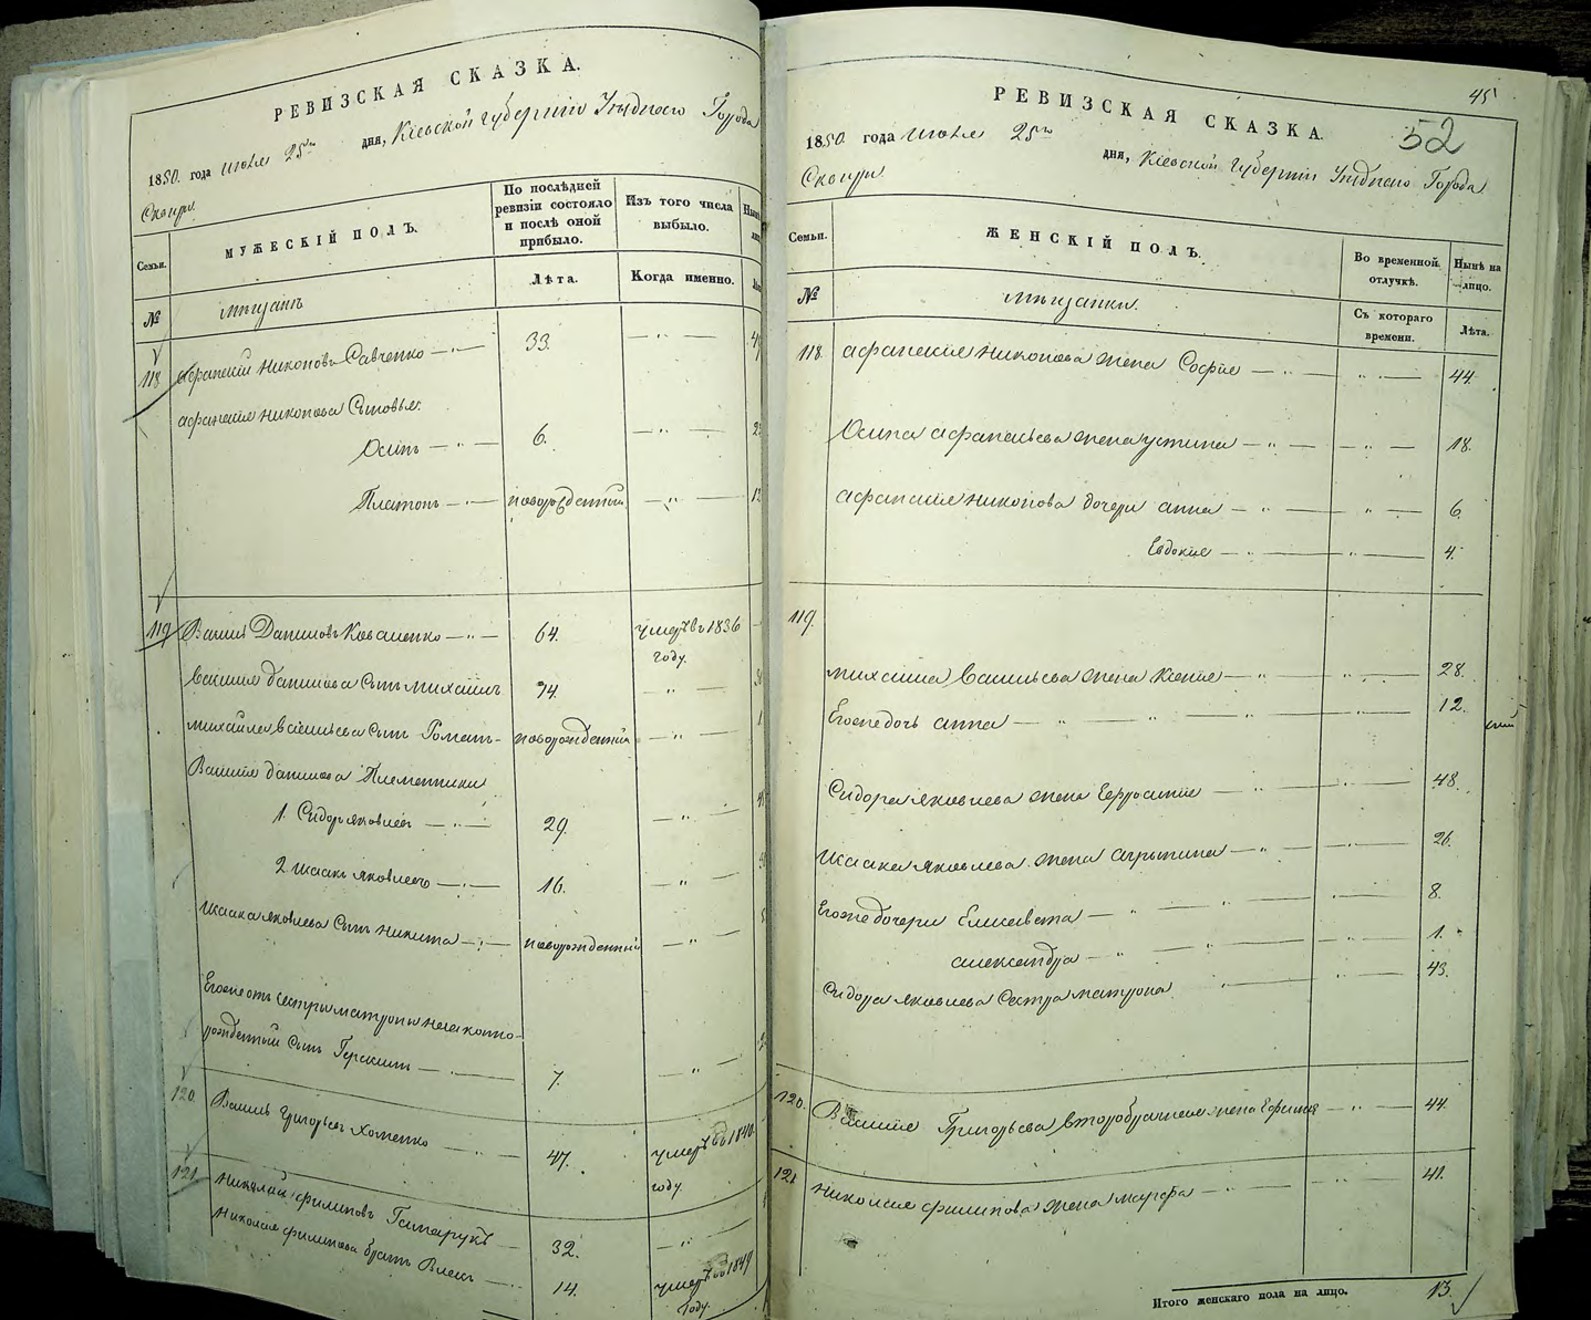 РЕВИЗСКАЯ СКАЗКА.
1850. года июля 25го дня, Кіевской Губерніи Уѣзднаго Города
Сквиры
Семьи. МУЖЕСКІЙ ПОЛЪ. По послѣдней ревизіи состояло и послѣ оной прибыло. Изъ того числа выбыло.
Лѣта. Когда именно.
№ мѣщанъ
118 Афанасій Никоновъ Савченко — " — 33. — " —
Афанасія Никонова Сыновья:
Осипъ — " — 6. — " —
Платонъ — " — новорожденный — " —
119 Василь Даниловъ Коваленко — " — 64. умеръ въ 1836
году.
Василия Данилова Сынъ Михаилъ 14. — " —
Михайла Васильева Сынъ Романъ - новорожденный — " —
Василия Данилова Племянники
1. Сидоръ Яковлевъ — " — 29. — " —
2. Исаакъ Яковлевъ — " — 16. — " —
Исаака Яковлева Сынъ Никита — " — новорожденный — " —
Егоже отъ сестры Матроны незаконно-
рожденный сынъ Герасимъ — " — 7. — " —
120. Василь Григорьевъ Хоменко — " — 47. умеръ въ 1840
году.
121. Николай Филиповъ Гонтарукъ — 32. — " —
Николая Филипова братъ Власъ — " — 14. умеръ въ 1849
году.
45
52
РЕВИЗСКАЯ СКАЗКА.
1850. года июля 25го дня, Кіевской Губерніи Уѣзднаго Города
Сквиры
Семьи. ЖЕНСКІЙ ПОЛЪ. Во временной отлучкѣ. Нынѣ на лицо.
№ мѣщанки. Съ котораго времени. Лѣта.
118. Афанасія Никонова жена Софія — " — " — 44.
Осипа Афанасьева жена Устина — " — " — 18.
Афанасія Никонова дочери Анна — " — " — 6.
Евдокія — " — " — 4.
119.
Михаила Васильева жена Ксенія — " — " — 28.
Егоже дочь Анна — " — " — " — 12.
Сидора Яковлева жена Ефросинія — " — " — 48.
Исаака Яковлева жена Агрыпина — " — " — 26.
Егоже дочери Елисавета — " — " — " — 8.
Александра — " — " — " — 1.
Сидора Яковлева Сестра Матрона " — " — 43.
120. Василія Григорьева второбрачная жена Ефимія — " — 44.
121 Николая Филипова жена Марфа — " — " — 41.
Итого женскаго пола на лицо. 13.